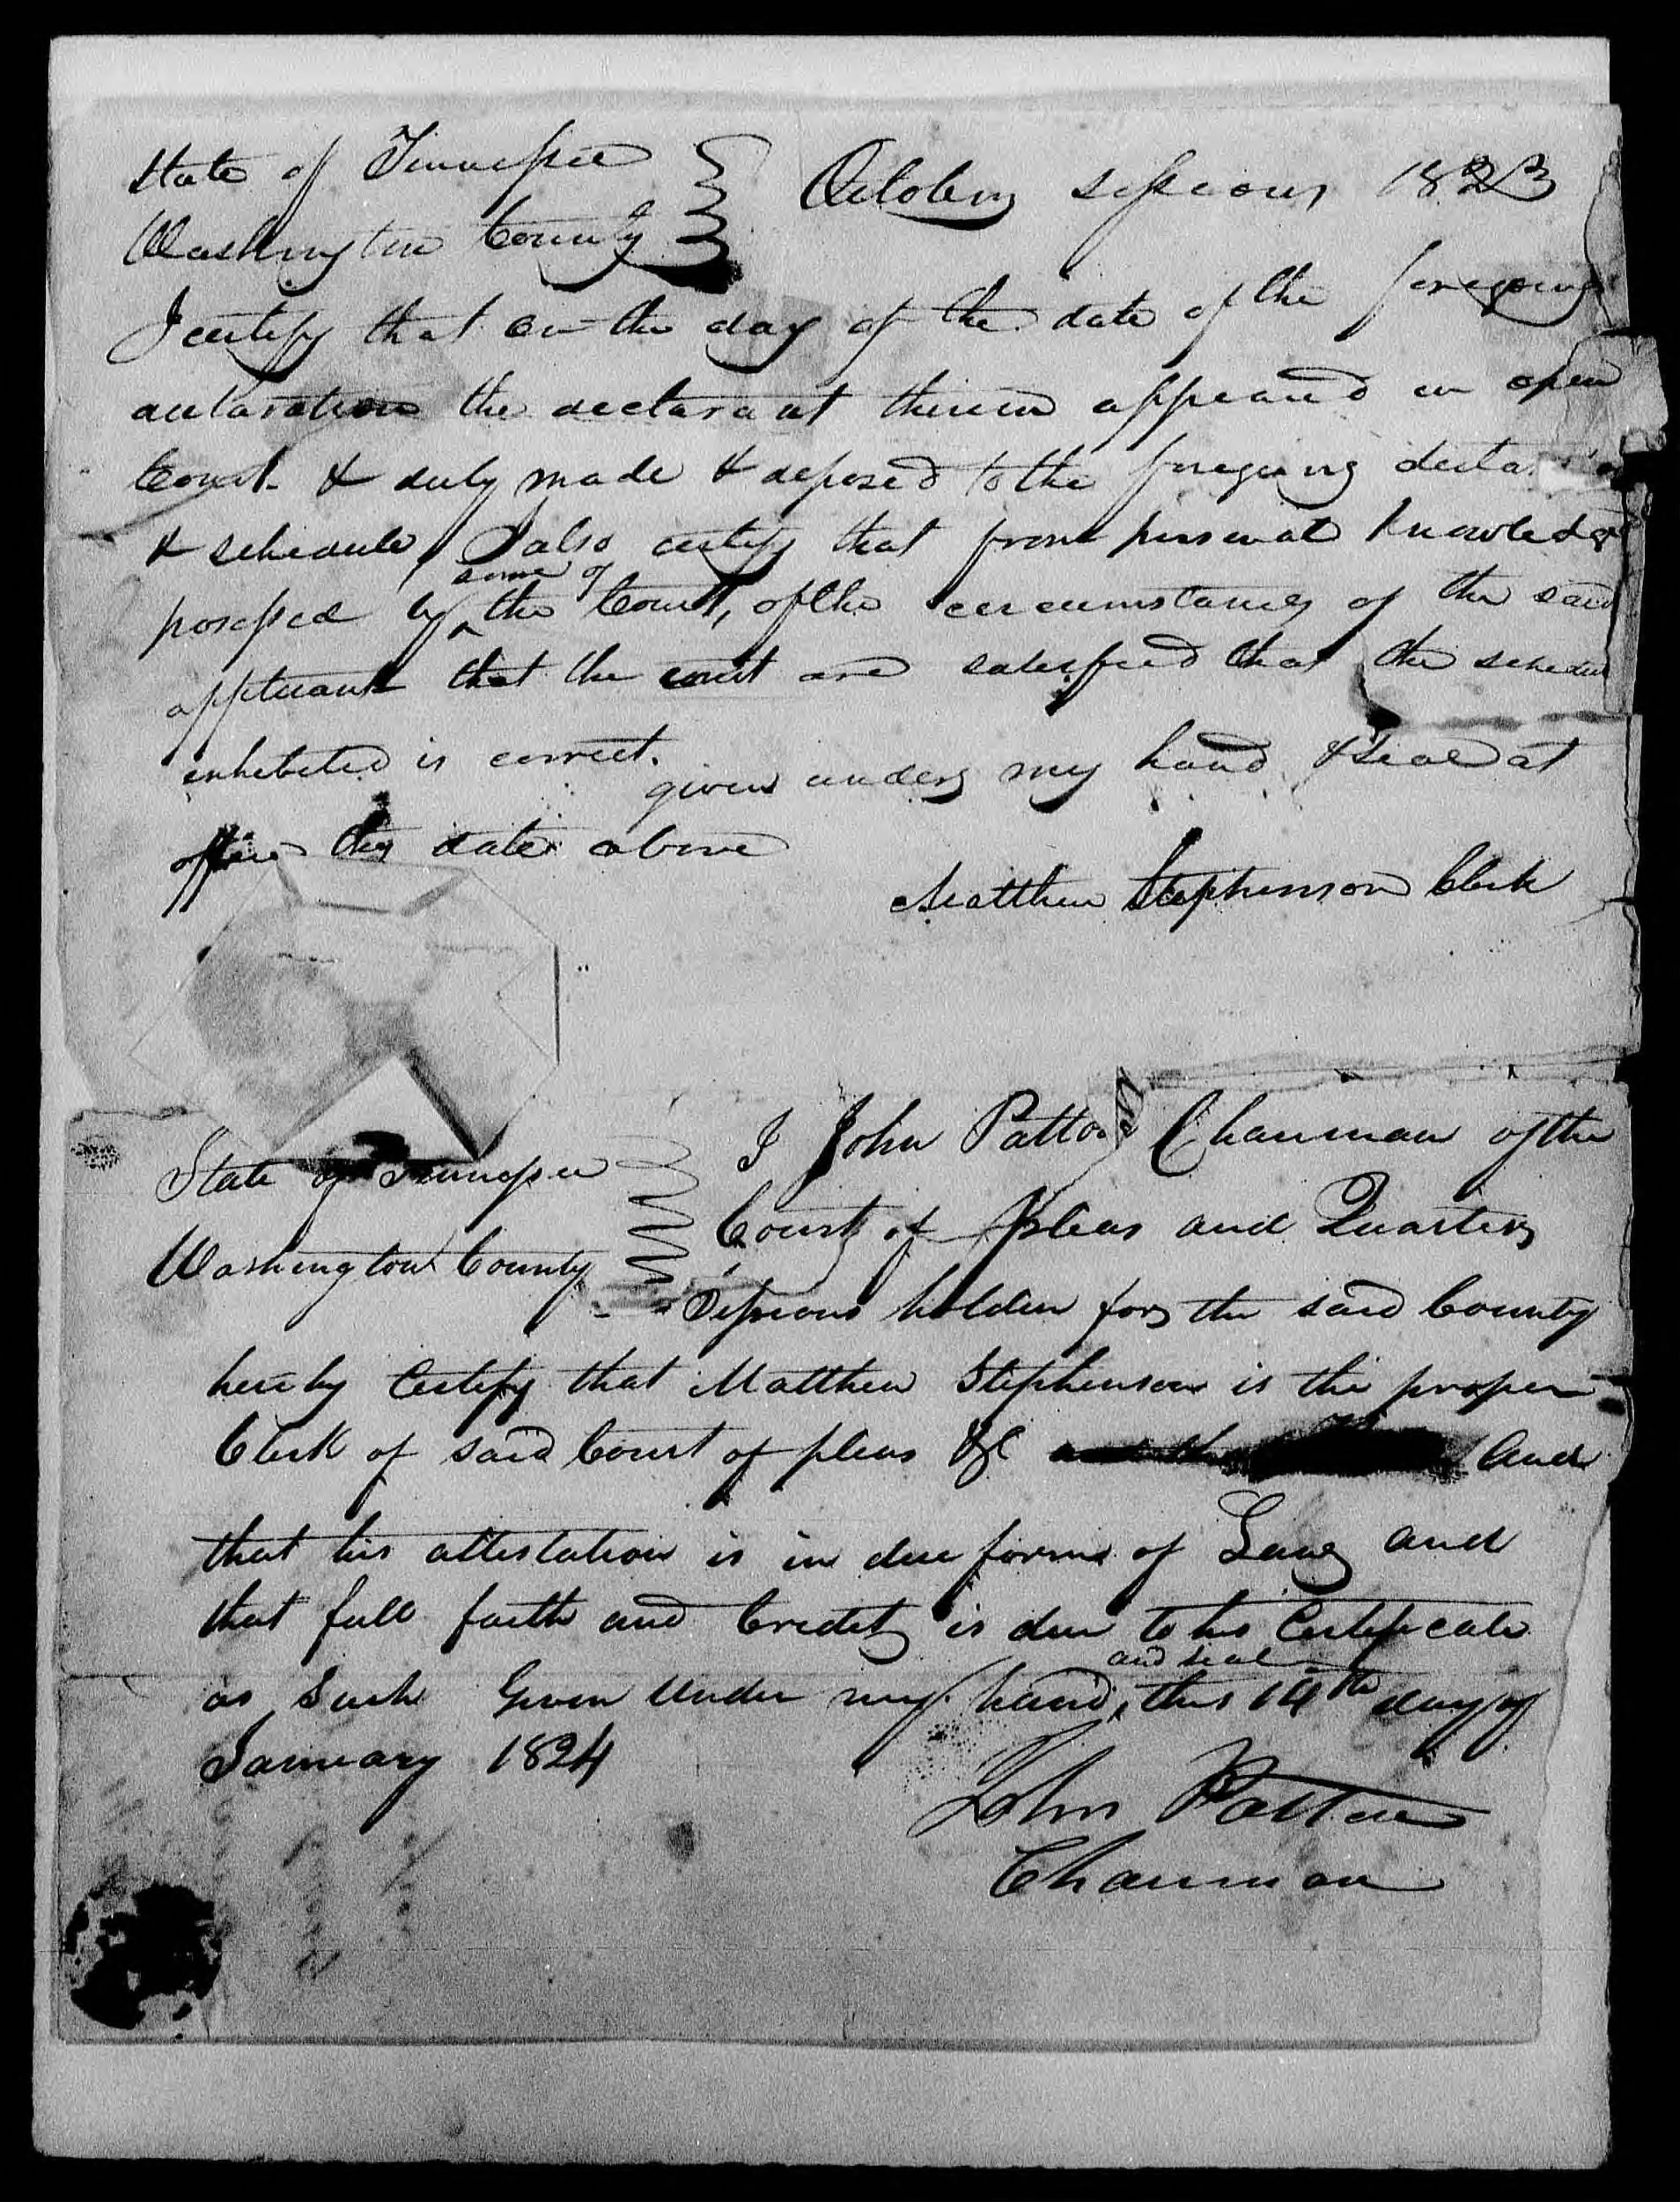 State of Tennessee
Washington County } October sessions 1823
I certify that on the day of the date of the foregoing
declaration the declarant therein appeared in open
Court & duly made & deposed to the foregoing
& schedule, I also certify that from personal knowledge
possessed by some of the Court, of the circumstances of the said
applicant that the court are satisfied that the
exhibited is correct. given under my hand & seal at
office this date above
Matthew Stephenson Clerk
State of Tennessee
Washington County } I John Patton Chairman of the
Court of pleas and Quarter
Sessions holden for the said County
hereby Certify that Matthew Stephenson is the proper
Clerk of said Court of pleas &c and
that his attestation is in due form of Law and
that full faith and Credit is due to his Certificate
as such Given under my hand and seal this 14th day of
January 1824
John Patton
Chairman